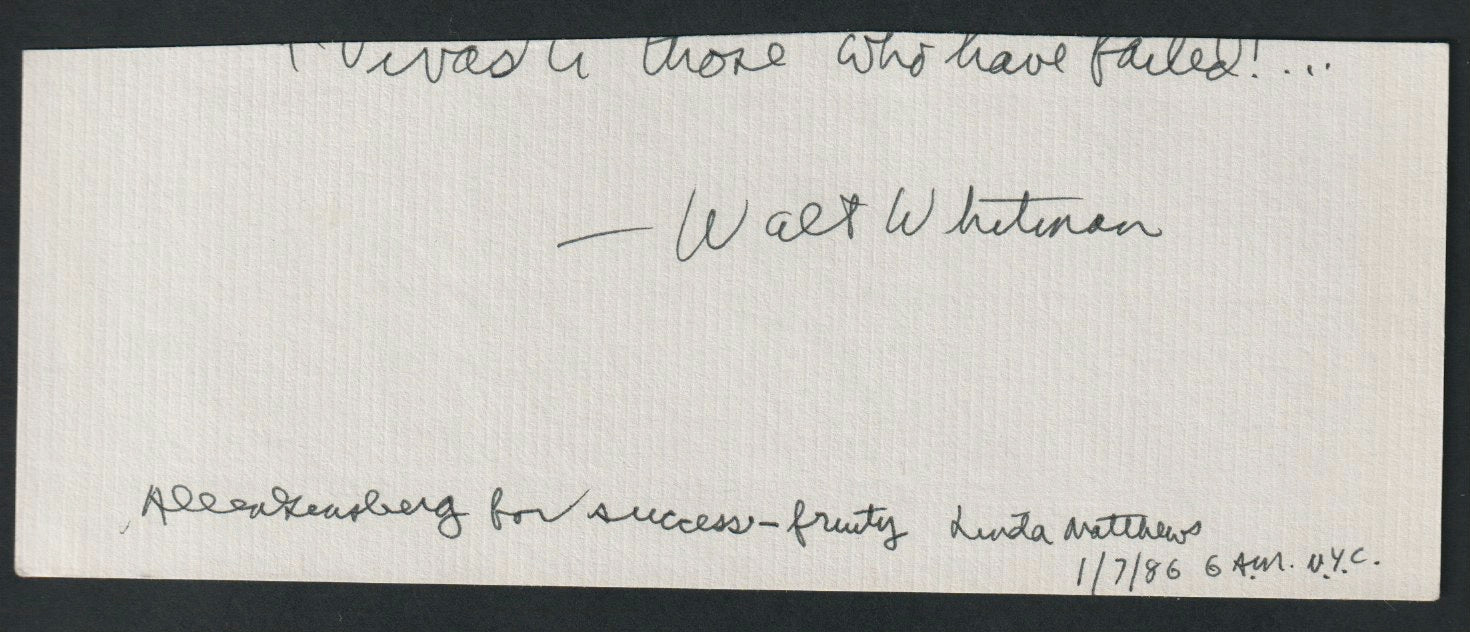 "Vivas to those who have failed!...
— Walt Whitman
Allen Ginsberg for success-fruity Linda Matthews
1/7/86 6 A.M. N.Y.C.